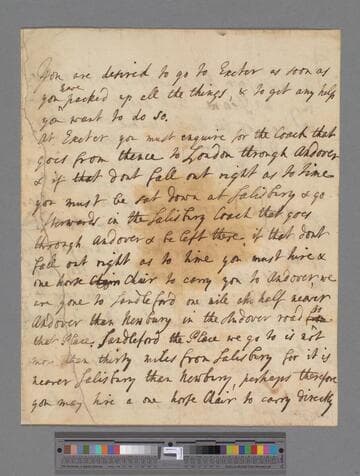 You are desired to go to Exeter as soon as
you have packed up all the things, & to get any help
you want to do so.
At Exeter you must enquire for the Coach that
goes from thence to London through Andover
& if that dont fall out right as to time
you must be sat down at Salisbury & go
afterwards in the Salisbury Coach that goes
through Andover & be left there. if that dont
fall out right as to time you must hire a
one horse Chair to carry you to Andover, we
are gone to Sandleford one mile & half nearer
Andover than Newbury in the Andover road to
that Place. Sandleford the Place we go to is not
more than thirty miles from Salisbury for it is
nearer Salisbury than Newbury, perhaps therefore
you may hire a one horse Chair to carry directly